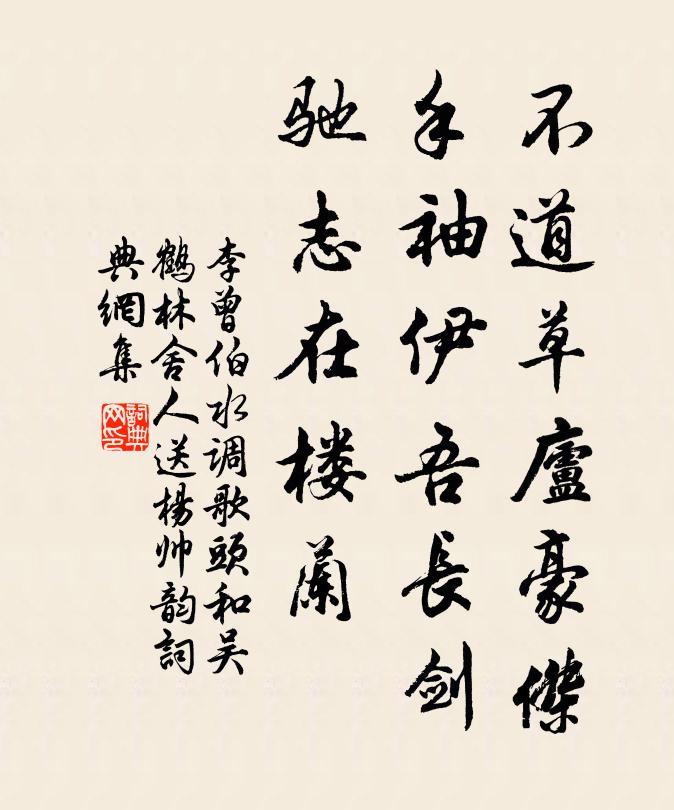 不道草廬豪傑
手袖伊吾長劍
驰志在楼蘭
李曾伯水调歌頭和吴
鶴林舍人送楊帅韵詞
典網集
詞典
网印